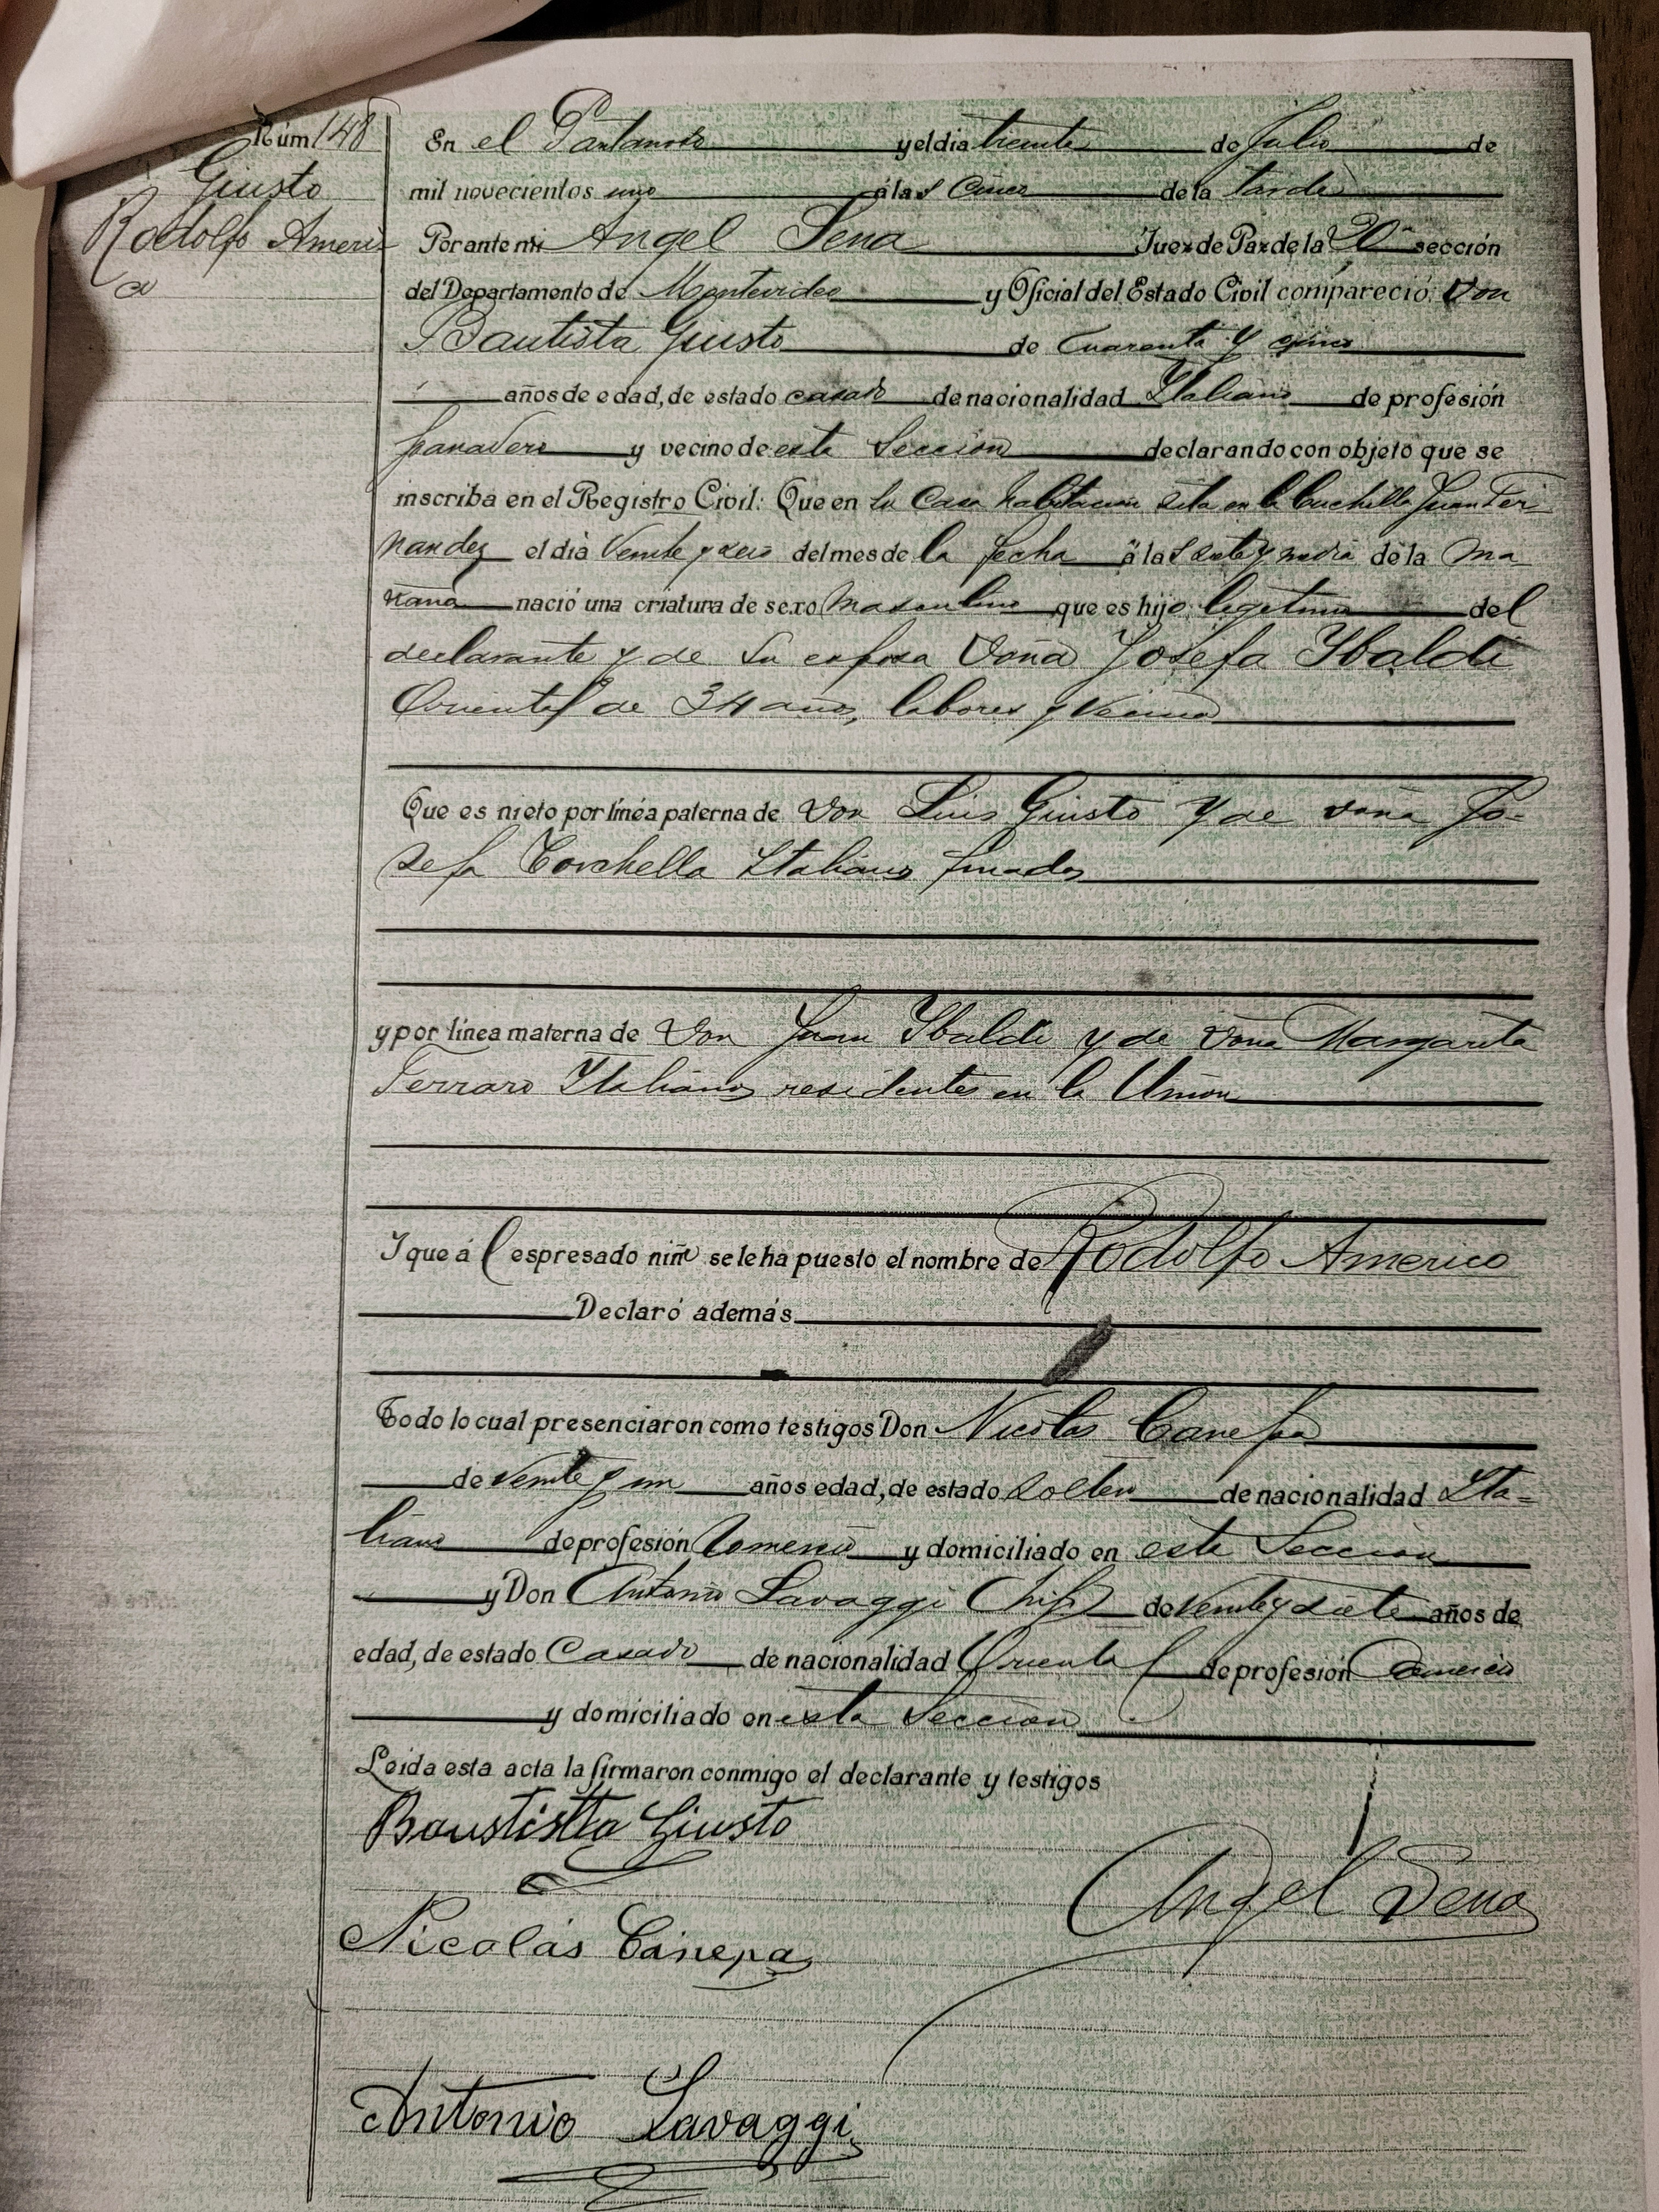 Núm 148
Giusto
Rodolfo Americ
o
En el Pantanoso y el dia treinta de Julio de
mil novecientos uno á las Cinco de la tarde
Por ante mi Angel Sena Juez de Paz de la 20ª sección
del Departamento de Montevideo y Oficial del Estado Civil compareció: Don
Bautista Giusto de Cuarenta y cinco
años de edad, de estado casado de nacionalidad Italiano de profesión
panadero y vecino de esta Sección declarando con objeto que se
inscriba en el Registro Civil: Que en la Casa habitación sita en la Cuchilla Juan Fer
nandez el dia Veinte y seis del mes de la fecha á las siete y media de la ma
ñana nació una criatura de sexo masculino que es hijo legitimo del
declarante y de su esposa Doña Josefa Ybaldi
Oriental de 34 años, labores y Vecina
Que es nieto por línea paterna de Don Luis Giusto y de doña Jo-
sefa Corchella Italianos finados
y por línea materna de Don Juan Ybaldi y de Doña Margarita
Ferraro Italianos residentes en la Unión
I que á l espresado niño se le ha puesto el nombre de Rodolfo Americo
Declaró además
Todo lo cual presenciaron como testigos Don Nicolas Canepa
de veinte y un años edad, de estado soltero de nacionalidad Ita-
liano de profesión Comercio y domiciliado en esta Sección
y Don Antonio Lavaggi (hijo) de veinte y siete años de
edad, de estado Casado de nacionalidad Oriental de profesión Comercio
y domiciliado en esta Sección
Leida esta acta la firmaron conmigo el declarante y testigos
Baustistta Giusto
Angel Sena
Nicolás Cánepa
Antonio Lavaggi